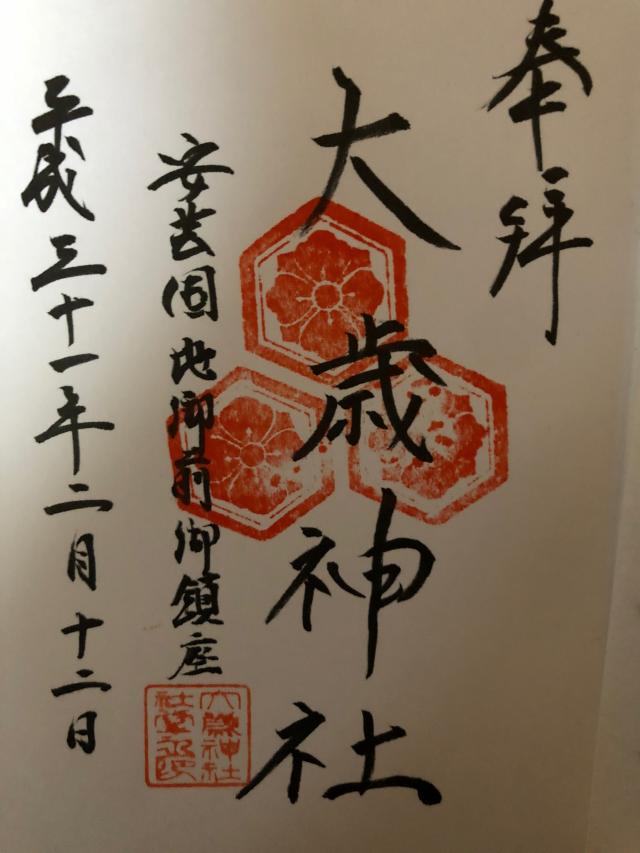 奉拝
大歳神社
安芸国地御前御鎮座
平成三十一年二月十二日
大歳神社